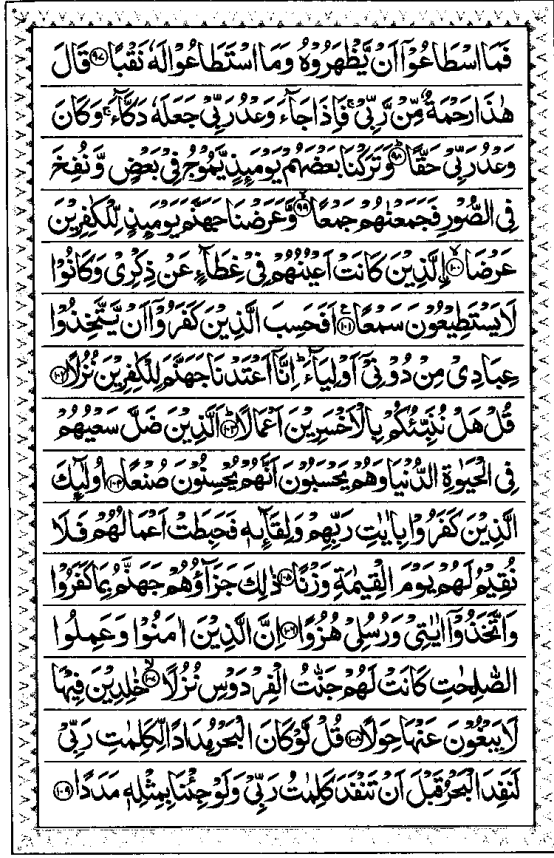 فَمَا اسْطَاعُوْۤا اَنْ يَّظْهَرُوْهُ وَمَا اسْتَطَاعُوْا لَهٗ نَقْبًا ﴿۹۷﴾ قَالَ
هٰذَا رَحْمَةٌ مِّنْ رَّبِّيْ ۚ فَاِذَا جَآءَ وَعْدُ رَبِّيْ جَعَلَهٗ دَكَّآءَ ۚ وَكَانَ
وَعْدُ رَبِّيْ حَقًّا ﴿۹۸﴾ وَتَرَكْنَا بَعْضَهُمْ يَوْمَئِذٍ يَّمُوْجُ فِيْ بَعْضٍ وَّنُفِخَ
فِي الصُّوْرِ فَجَمَعْنٰهُمْ جَمْعًا ﴿۹۹﴾ وَّعَرَضْنَا جَهَنَّمَ يَوْمَئِذٍ لِّلْكٰفِرِيْنَ
عَرْضَا ﴿۱۰۰﴾ اِۨلَّذِيْنَ كَانَتْ اَعْيُنُهُمْ فِيْ غِطَآءٍ عَنْ ذِكْرِيْ وَكَانُوْا
لَا يَسْتَطِيْعُوْنَ سَمْعًا ﴿۱۰۱﴾ اَفَحَسِبَ الَّذِيْنَ كَفَرُوْۤا اَنْ يَّتَّخِذُوْا
عِبَادِيْ مِنْ دُوْنِيْۤ اَوْلِيَآءَ ؕ اِنَّاۤ اَعْتَدْنَا جَهَنَّمَ لِلْكٰفِرِيْنَ نُزُلًا ﴿۱۰۲﴾
قُلْ هَلْ نُنَبِّئُكُمْ بِالْاَخْسَرِيْنَ اَعْمَالًا ﴿۱۰۳﴾ اَلَّذِيْنَ ضَلَّ سَعْيُهُمْ
فِي الْحَيٰوةِ الدُّنْيَا وَهُمْ يَحْسَبُوْنَ اَنَّهُمْ يُحْسِنُوْنَ صُنْعًا ﴿۱۰۴﴾ اُولٰٓئِكَ
الَّذِيْنَ كَفَرُوْا بِاٰيٰتِ رَبِّهِمْ وَلِقَآئِهٖ فَحَبِطَتْ اَعْمَالُهُمْ فَلَا
نُقِيْمُ لَهُمْ يَوْمَ الْقِيٰمَةِ وَزْنًا ﴿۱۰۵﴾ ذٰلِكَ جَزَآؤُهُمْ جَهَنَّمُ بِمَا كَفَرُوْا
وَاتَّخَذُوْۤا اٰيٰتِيْ وَرُسُلِيْ هُزُوًا ﴿۱۰۶﴾ اِنَّ الَّذِيْنَ اٰمَنُوْا وَعَمِلُوا
الصّٰلِحٰتِ كَانَتْ لَهُمْ جَنّٰتُ الْفِرْدَوْسِ نُزُلًا ﴿۱۰۷﴾ خٰلِدِيْنَ فِيْهَا
لَا يَبْغُوْنَ عَنْهَا حِوَلًا ﴿۱۰۸﴾ قُلْ لَّوْ كَانَ الْبَحْرُ مِدَادًا لِّكَلِمٰتِ رَبِّيْ
لَنَفِدَ الْبَحْرُ قَبْلَ اَنْ تَنْفَدَ كَلِمٰتُ رَبِّيْ وَلَوْ جِئْنَا بِمِثْلِهٖ مَدَدًا ﴿۱۰۹﴾